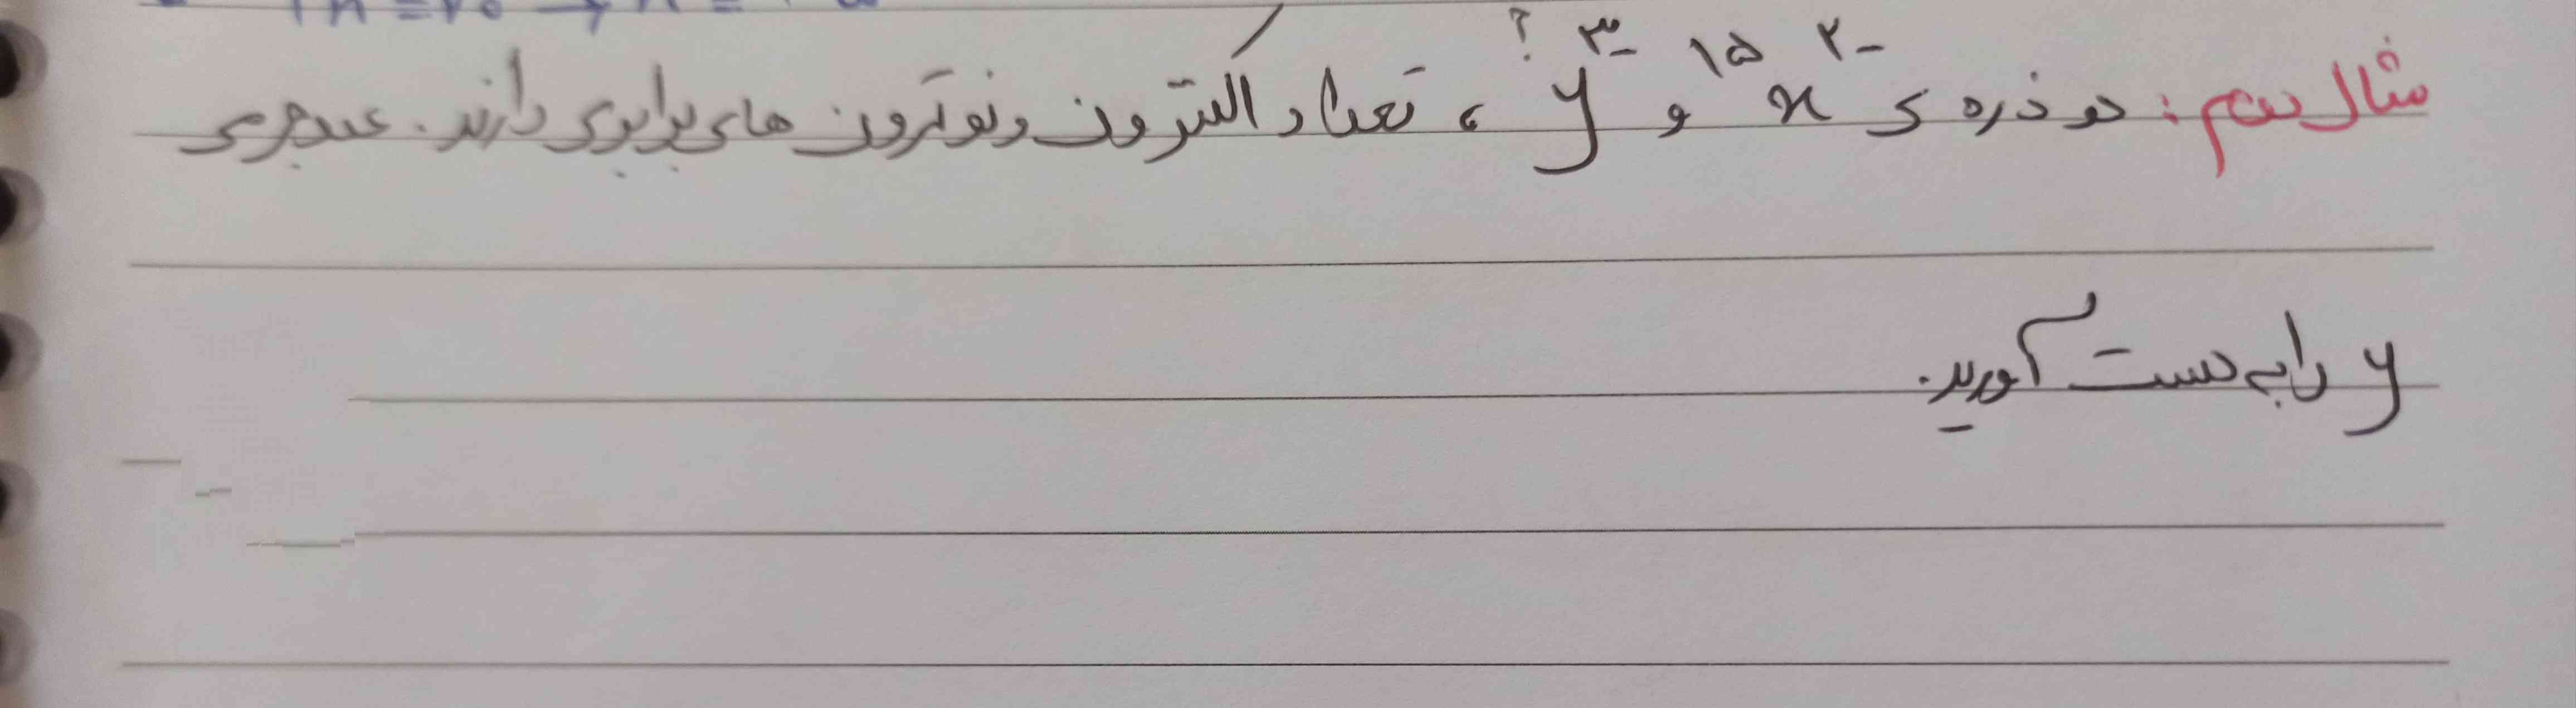 مثال دوم: دو ذره ی ¹⁵x²⁻ و ?y³⁻ ، تعداد الکترون و نوترون های برابری دارند. عدد جرمی
y را به دست آورید.